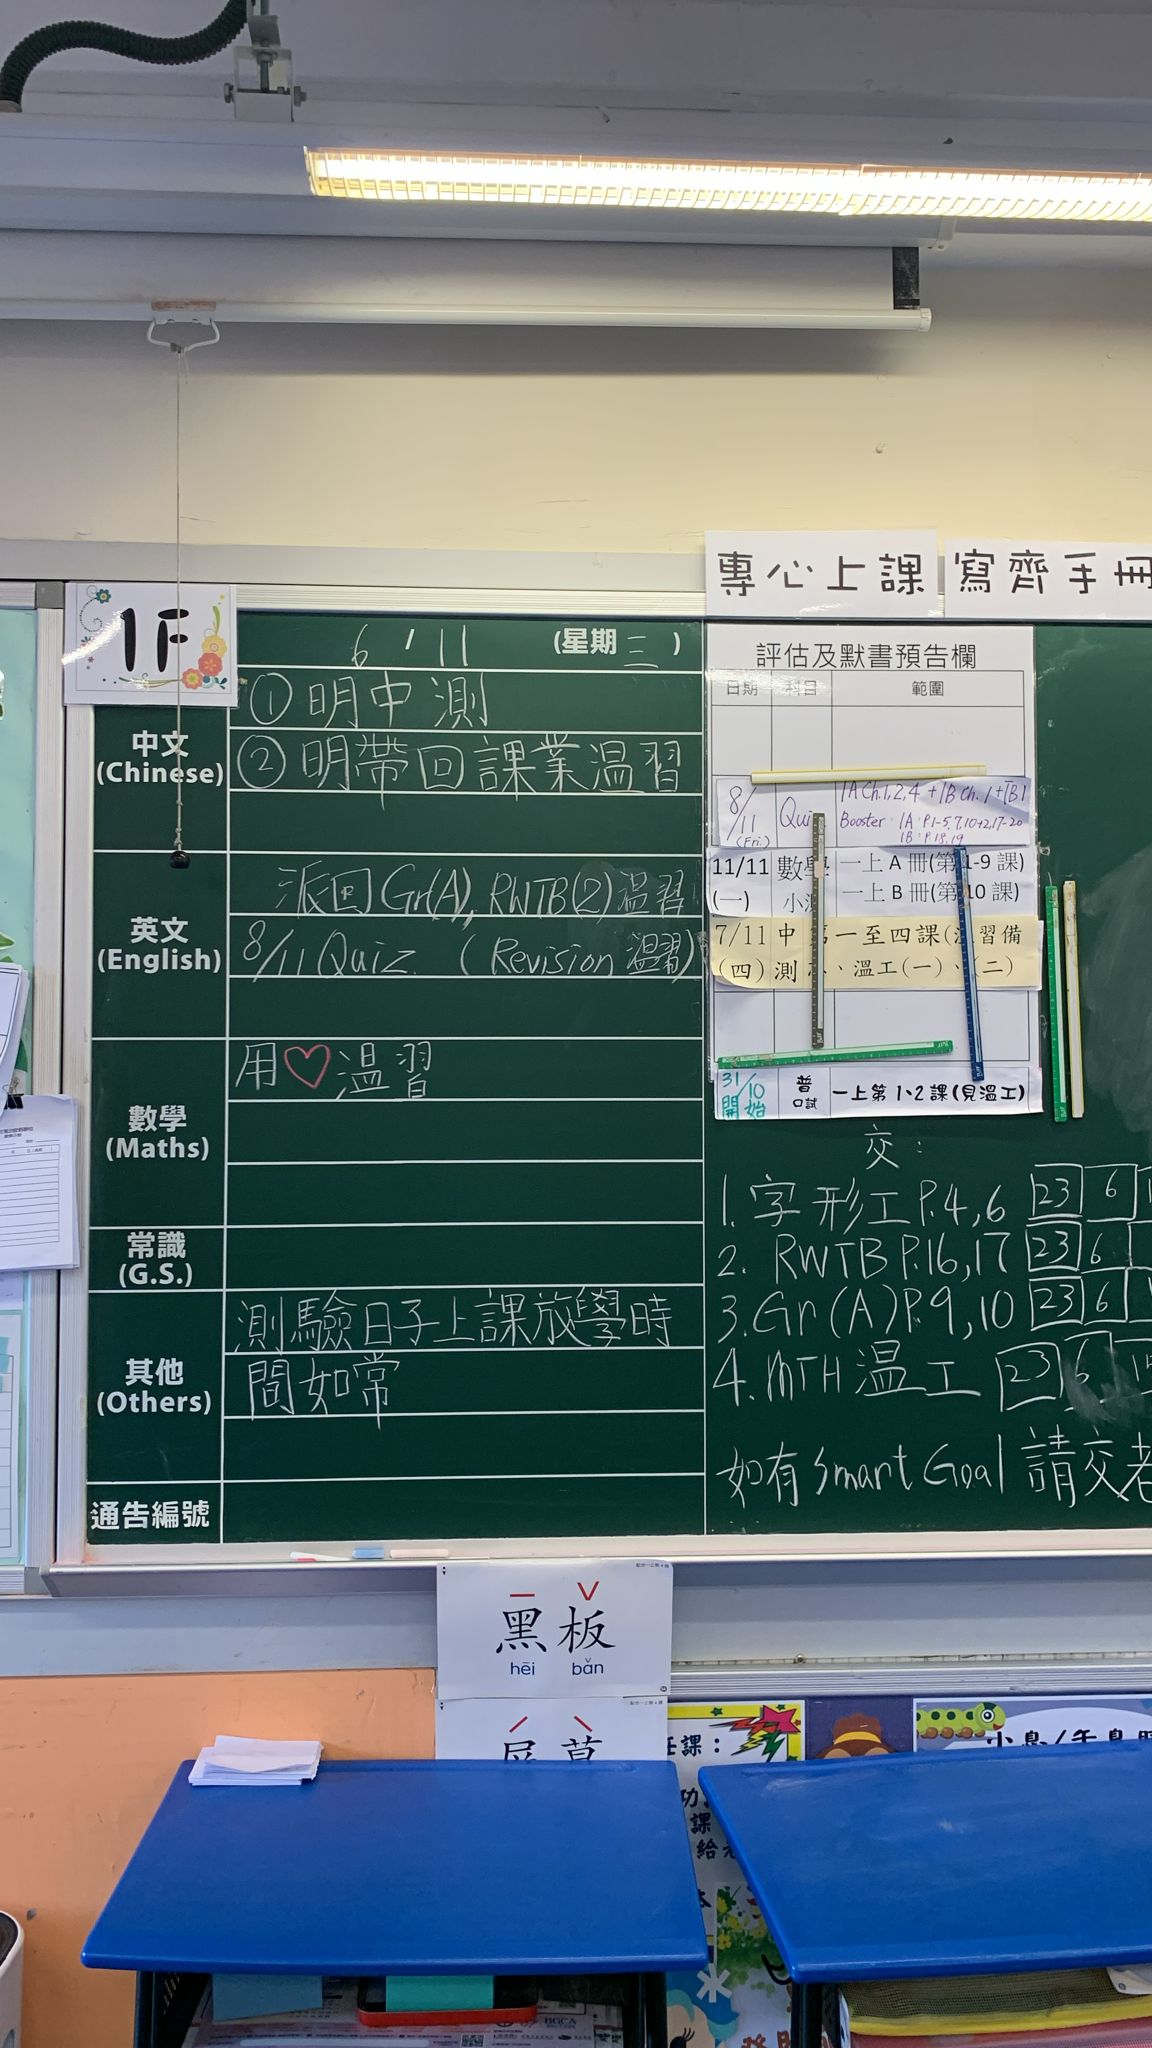 專心上課 寫齊手冊
1F
6 / 11 (星期三)
中文
(Chinese)
①明中測
②明帶回課業溫習
英文
(English)
派回Gr(A), RWTB(2)溫習
8/11 Quiz. (Revision 溫習)
數學
(Maths)
用♡溫習
常識
(G.S.)
其他
(Others)
測驗日子上課放學時
間如常
通告編號
評估及默書預告欄
日期 科目 範圍
8/11 (Fri.) Qui 1A Ch.1,2,4 + 1B Ch.1 + 1B1
Booster: 1A: P.1-5,7,10+2,17-20
1B: P.18,19
11/11 數學 一上 A 冊(第1-9 課)
(一) 小 一上 B 冊(第10 課)
7/11 中 第一至四課( 習備
(四) 測 、溫工(一)、(二)
31/10 開始 普 口試 一上第1、2課(見溫工)
交:
1. 字形工 P.4,6 23 6
2. RWTB P.16,17 23 6
3. Gr(A) P.9,10 23 6
4. MTH 溫工 23 6
如有 Smart Goal 請交老
黑板
hēi bǎn
課:
功
課
給
BGCA